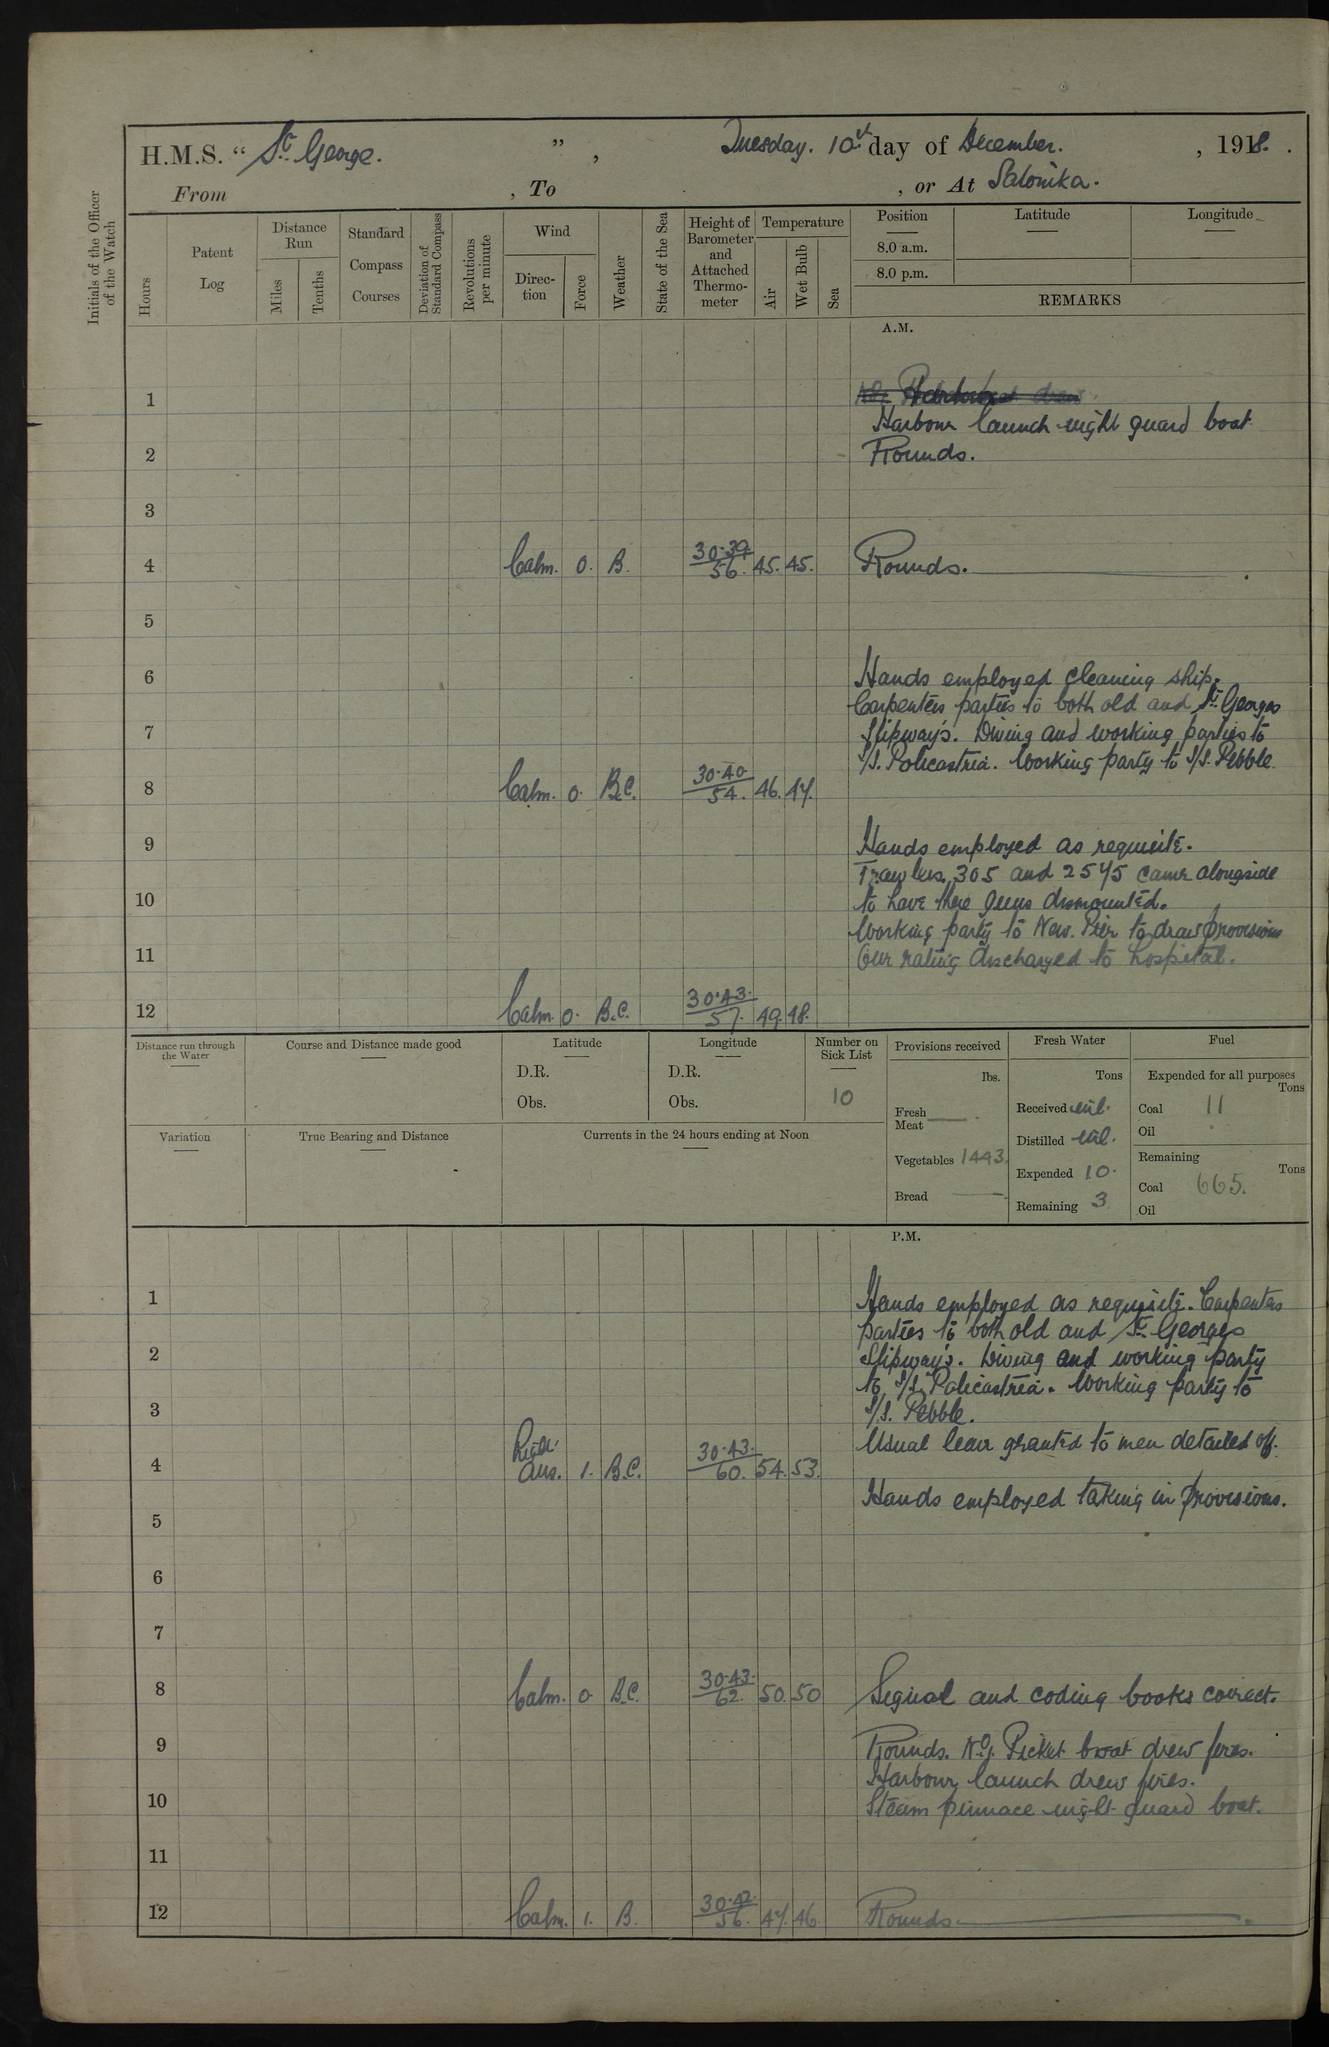 H.M.S. “ St. George. ” , Tuesday. 10th day of December. , 1918.
From , To , or At Salonika.
Initials of the Officer of the Watch
Hours
Patent Log
Distance Run
Miles
Tenths
Standard Compass Courses
Deviation of Standard Compass
Revolutions per minute
Wind
Direc-tion
Force
Weather
State of the Sea
Height of Barometer and Attached Thermo-meter
Temperature
Air
Wet Bulb
Sea
Position
8.0 a.m.
8.0 p.m.
Latitude
Longitude
REMARKS
A.M.
1
Harbour launch night guard boat
2 Rounds.
3
4 Calm. 0. B. 30.39/56. 45. 45. Rounds.
5
6 Hands employed cleaning ship.
Carpenters parties to both old and St. Georges
7 Slipway's. Diving and working parties to
S/S. Policastria. Working party to S/S. Pebble
8 Calm. 0. B.C. 30.40/54. 46. 47.
9 Hands employed as requisite.
Trawlers 305 and 2575 came alongside
10 to have there guns dismounted.
Working party to New. Pier to draw provisions
11 One rating discharged to hospital.
12 Calm. 0. B.C. 30.43./57. 49. 48.
Distance run through the Water
Course and Distance made good
Latitude
D.R.
Obs.
Longitude
D.R.
Obs.
Number on Sick List
10
Provisions received
lbs.
Fresh Meat —
Vegetables 1443.
Bread —
Fresh Water
Tons
Received nil.
Distilled nil.
Expended 10.
Remaining 3
Fuel
Expended for all purposes
Tons
Coal 11
Oil
Remaining
Tons
Coal 665.
Oil
Variation
True Bearing and Distance
Currents in the 24 hours ending at Noon
P.M.
1 Hands employed as requisite. Carpenters
parties to both old and St. Georges
2 Slipway's. Diving and working party
to S/S. Policastria. Working party to
3 S/S. Pebble.
Usual leave granted to men detailed off.
4 Light Airs. 1. B.C. 30.43./60. 54. 53.
Hands employed taking in provisions.
5
6
7
8 Calm. 0. B.C. 30.43./62. 50. 50 Signal and coding books correct.
9 Rounds. No 1. Picket boat drew fires.
Harbour launch drew fires.
10 Steam pinnace night guard boat.
11
12 Calm. 1. B. 30.42./56. 47. 46. Rounds